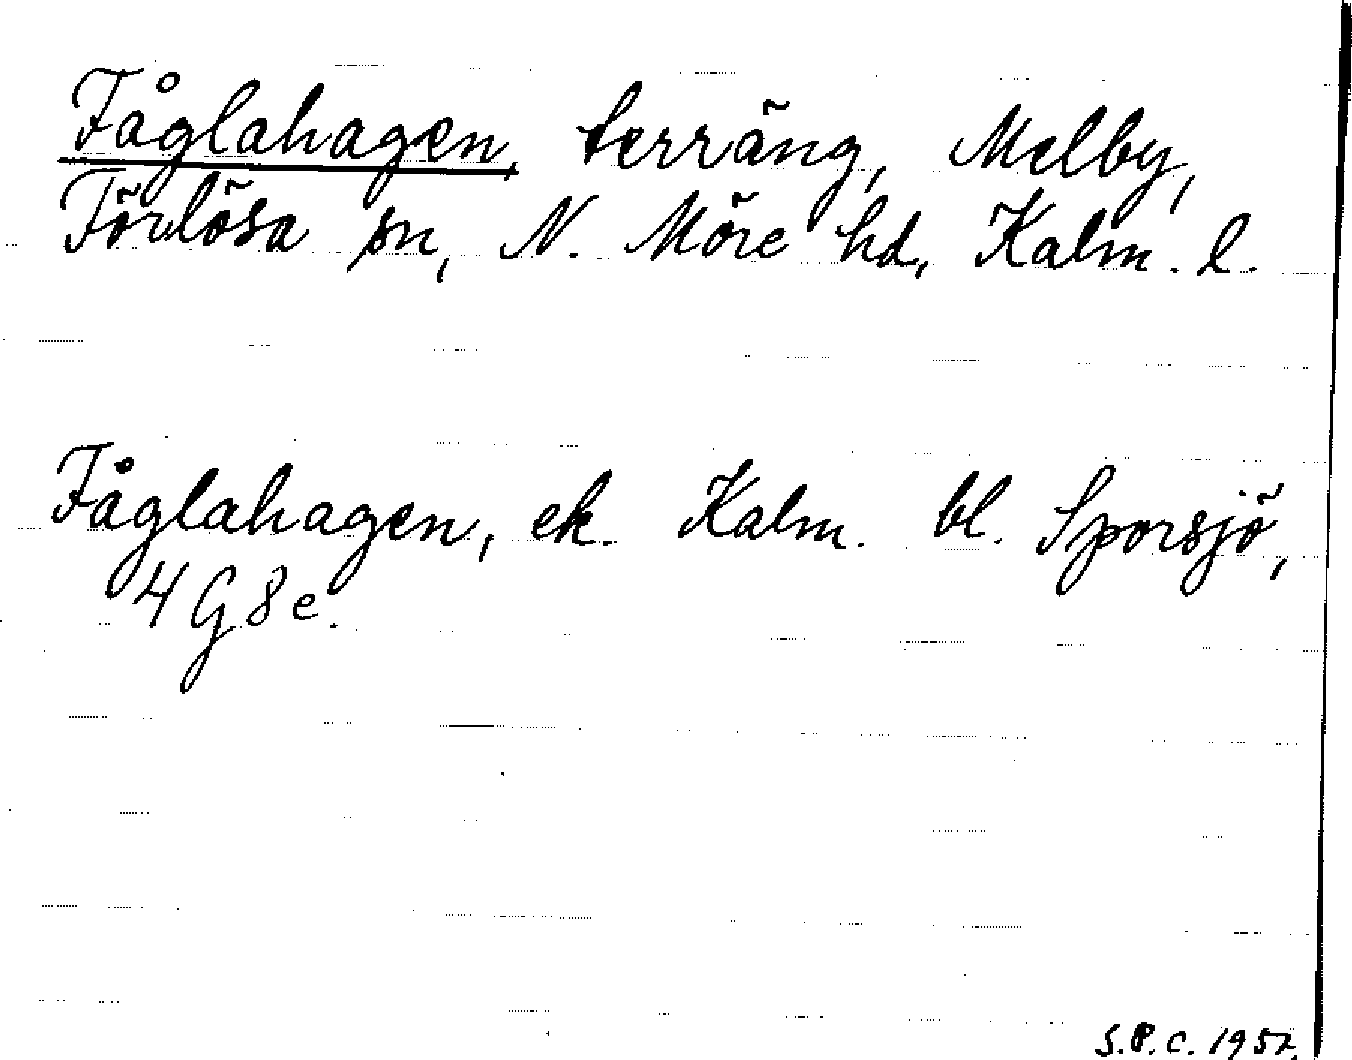 Fåglahagen, terräng, Melby,
Förlösa sn, N. Möre hd, Kalm. l.
Fåglahagen, ek. Kalm. bl. Sporsjö,
4 G 8 e.
S.P.C. 1957.